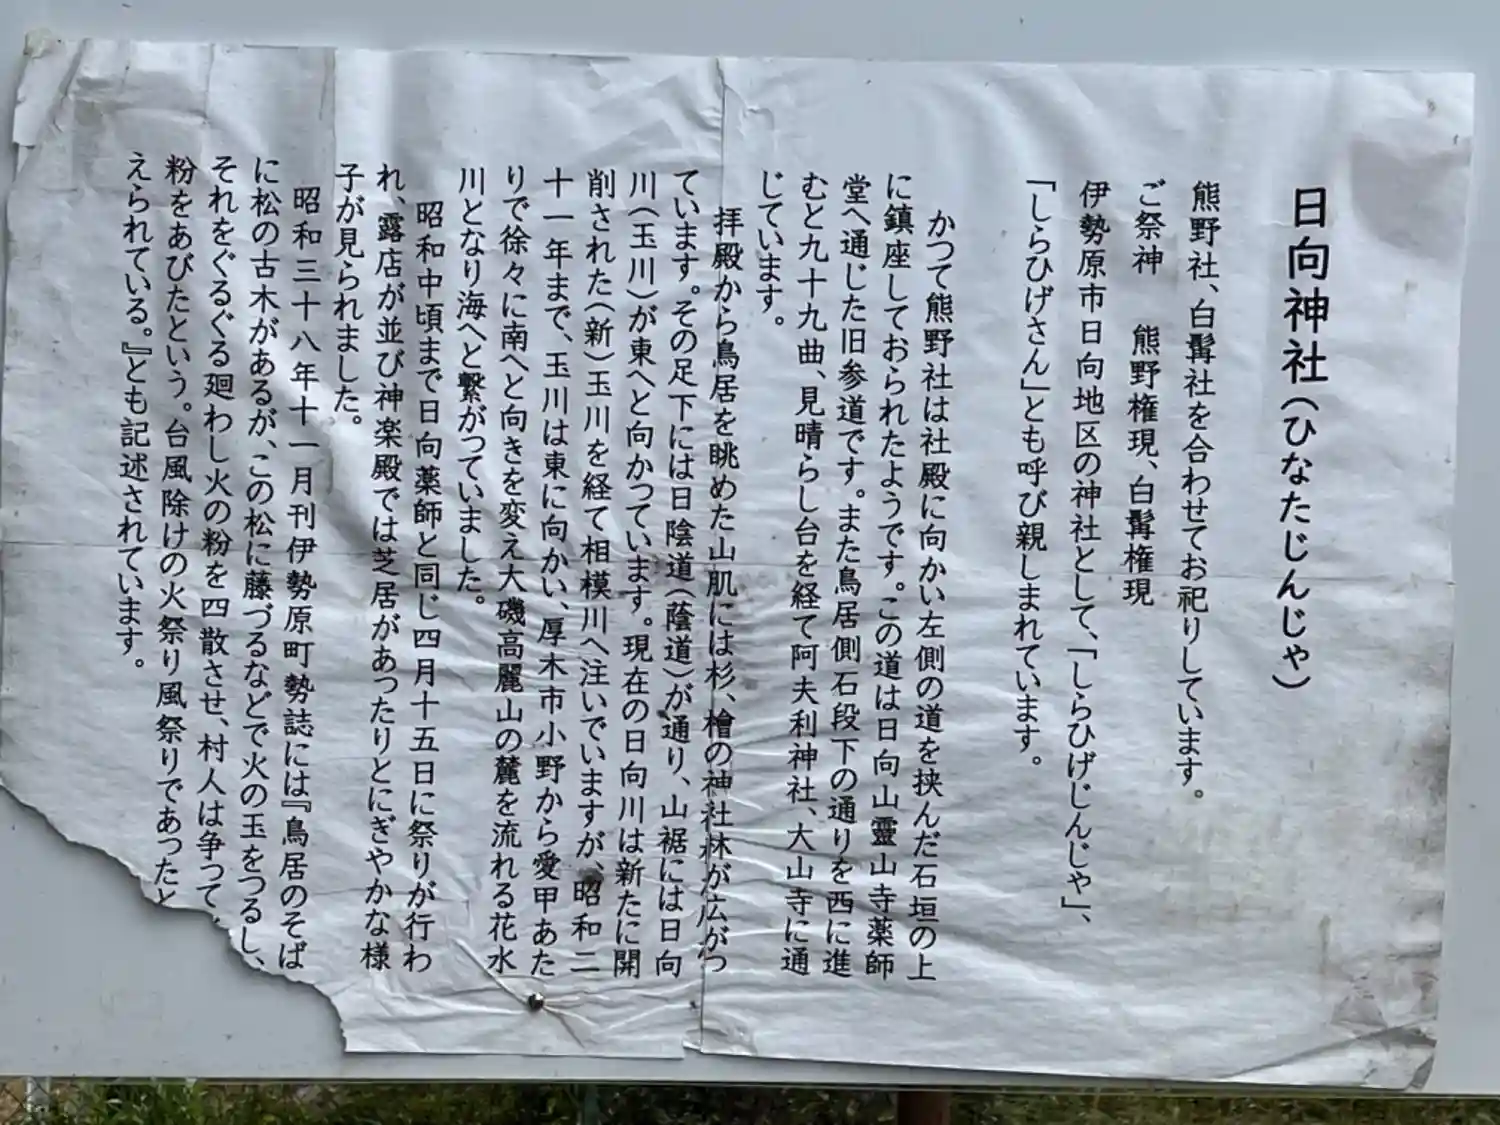 日向神社(ひなたじんじゃ)
熊野社、白髯社を合わせてお祀りしています。
ご祭神 熊野権現、白髯権現
伊勢原市日向地区の神社として、「しらひげじんじゃ」、
「しらひげさん」とも呼び親しまれています。
かつて熊野社は社殿に向かい左側の道を挟んだ石垣の上
に鎮座しておられたようです。この道は日向山靈山寺薬師
堂へ通じた旧参道です。また鳥居側石段下の通りを西に進
むと九十九曲、見晴らし台を経て阿夫利神社、大山寺に通
じています。
拝殿から鳥居を眺めた山肌には杉、檜の神社林が広がっ
ています。その足下には日陰道(蔭道)が通り、山裾には日向
川(玉川)が東へと向かつています。現在の日向川は新たに開
削された(新)玉川を経て相模川へ注いでいますが、昭和二
十一年まで、玉川は東に向かい、厚木市小野から愛甲あた
りで徐々に南へと向きを変え大磯高麗山の麓を流れる花水
川となり海へと繋がっていました。
昭和中頃まで日向薬師と同じ四月十五日に祭りが行わ
れ、露店が並び神楽殿では芝居があったりとにぎやかな様
子が見られました。
昭和三十八年十一月刊伊勢原町勢誌には『鳥居のそば
に松の古木があるが、この松に藤づるなどで火の玉をつるし、
それをぐるぐる廻わし火の粉を四散させ、村人は争って、
粉をあびたという。台風除けの火祭り風祭りであったと
えられている。』とも記述されています。